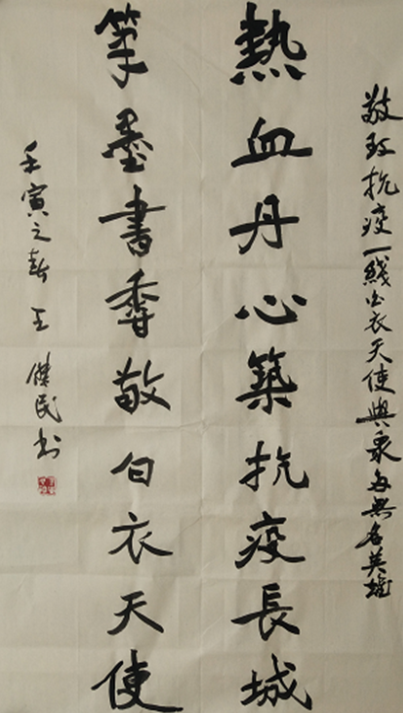 敬致抗疫一线白衣天使與衆多無名英雄
熱血丹心築抗疫長城
筆墨書香敬白衣天使
壬寅之新王傑民书